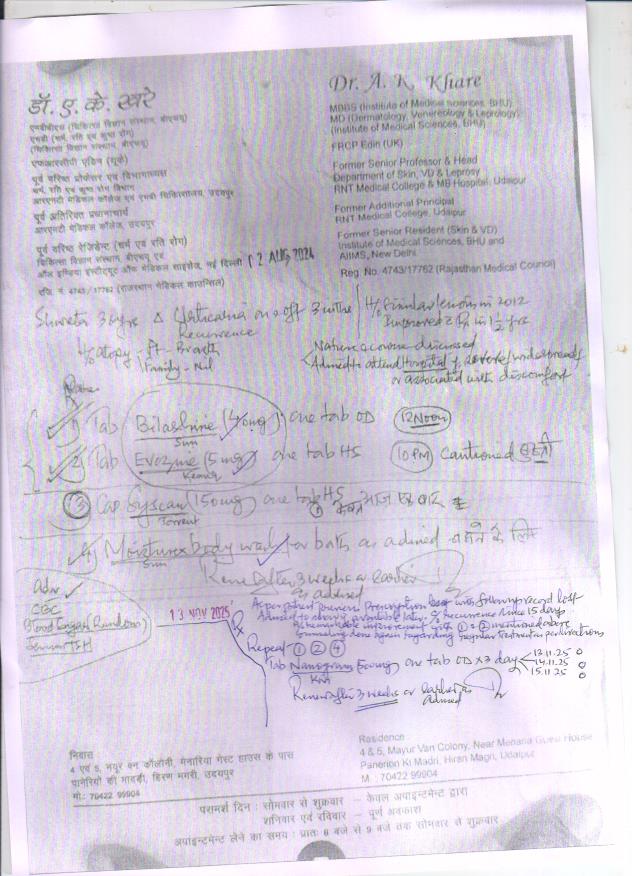 डॉ. ए. के. खरे
एमबीबीएस (चिकित्सा विज्ञान संस्थान, बीएचयू)
एमडी (चर्म, रति एवं कुष्ठ रोग)
(चिकित्सा विज्ञान संस्थान, बीएचयू)
एफआरसीपी एडिन (यूके)
पूर्व वरिष्ठ प्रोफेसर एवं विभागाध्यक्ष
चर्म, रति एवं कुष्ठ रोग विभाग
आरएनटी मेडिकल कॉलेज एवं एमबी चिकित्सालय, उदयपुर
पूर्व अतिरिक्त प्रधानाचार्य
आरएनटी मेडिकल कॉलेज, उदयपुर
पूर्व वरिष्ठ रेजिडेन्ट (चर्म एवं रति रोग)
चिकित्सा विज्ञान संस्थान, बीएचयू एवं
ऑल इण्डिया इंस्टीट्यूट ऑफ मेडिकल साइंसेज, नई दिल्ली
रजि. नं. 4743/17762 (राजस्थान मेडिकल काउन्सिल)
Dr. A. K. Khare
MBBS (Institute of Medical Sciences, BHU)
MD (Dermatology, Venereology & Leprology)
(Institute of Medical Sciences, BHU)
FRCP Edin (UK)
Former Senior Professor & Head
Department of Skin, VD & Leprosy
RNT Medical College & MB Hospital, Udaipur
Former Additional Principal
RNT Medical College, Udaipur
Former Senior Resident (Skin & VD)
Institute of Medical Sciences, BHU and
AIIMS, New Delhi
Reg. No. 4743/17762 (Rajasthan Medical Council)
12 AUG 2024
Shweta 3 yrs Δ Urticaria on & off 3 mths
Recurrence
H/o similar lesion in 2012
Improved c Rx in 1½ yrs
H/o atopy - Pt -
Family - Nil
Nature & course discussed
Advised to attend Hospital if severe / widespread
or associated with discomfort
1 Tab Bilashine (40mg) one tab OD 12 Noon
Sun
2 Tab Evozine (5mg) one tab HS 10 PM Cautioned
3 Cap Syscan (150mg) one tab HS आज एक बार
Torrent
4 Moisturex body wash for bath as advised
Sun
Renew after 3 weeks or earlier
as advised
Adv
CBC
Blood Sugar (Random)
Serum TSH
13 NOV 2025
Rx
with follow up record lost
recurrence since 15 days
improvement with 1 & 2 mentioned above
Counseling done again regarding regular treatment
Repeat 1 2 4
Tab (500mg) one tab OD x 3 day
13.11.25
14.11.25
15.11.25
Renew after 3 weeks or earlier as
advised
निवास :
4 एवं 5, मयूर वन कॉलोनी, मेनारिया गेस्ट हाउस के पास
पानेरियों की मादड़ी, हिरण मगरी, उदयपुर
मो.: 70422 99904
Residence :
4 & 5, Mayur Van Colony, Near Menaria Guest House
Panerion Ki Madri, Hiran Magri, Udaipur
M : 70422 99904
परामर्श दिन : सोमवार से शुक्रवार – केवल अपाइन्टमेन्ट द्वारा
शनिवार एवं रविवार – पूर्ण अवकाश
अपाइन्टमेन्ट लेने का समय : प्रातः 8 बजे से 9 बजे तक सोमवार से शुक्रवार